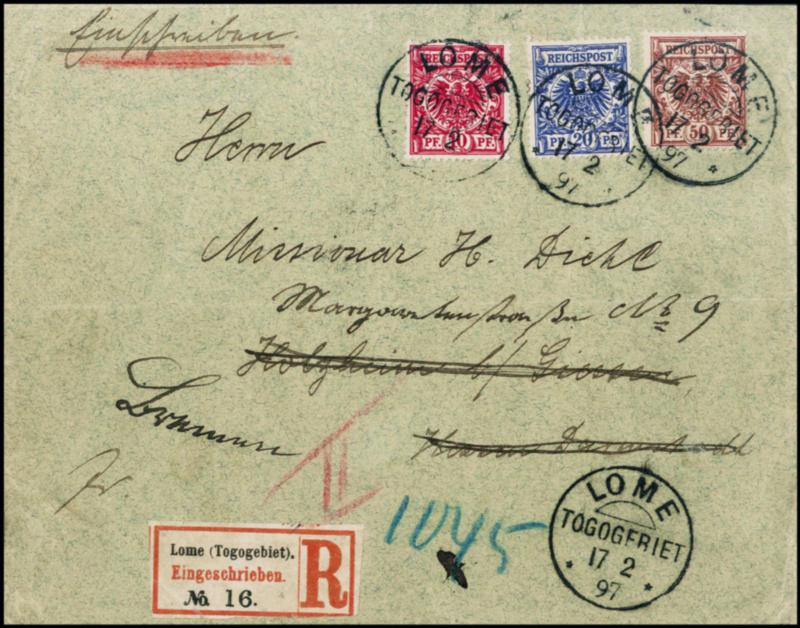 Einschreiben.
REICHSPOST
PF. 10 PF.
REICHSPOST
PF. 20 PF.
REICHSPOST
PF. 50 PF.
LOME
TOGOGEBIET
17 2
LOME
TOGOGEBIET
17 2
97
LOME
TOGOGEBIET
17 2
97
Herrn
Missionar H. Diehl
Margaretenstraße No 9
Holzheim b/ Giessen
Bremen
Hessen Darmstadt
fr.
II
1045
LOME
TOGOGEBIET
17 2
97
Lome (Togogebiet).
Eingeschrieben.
No. 16.
R